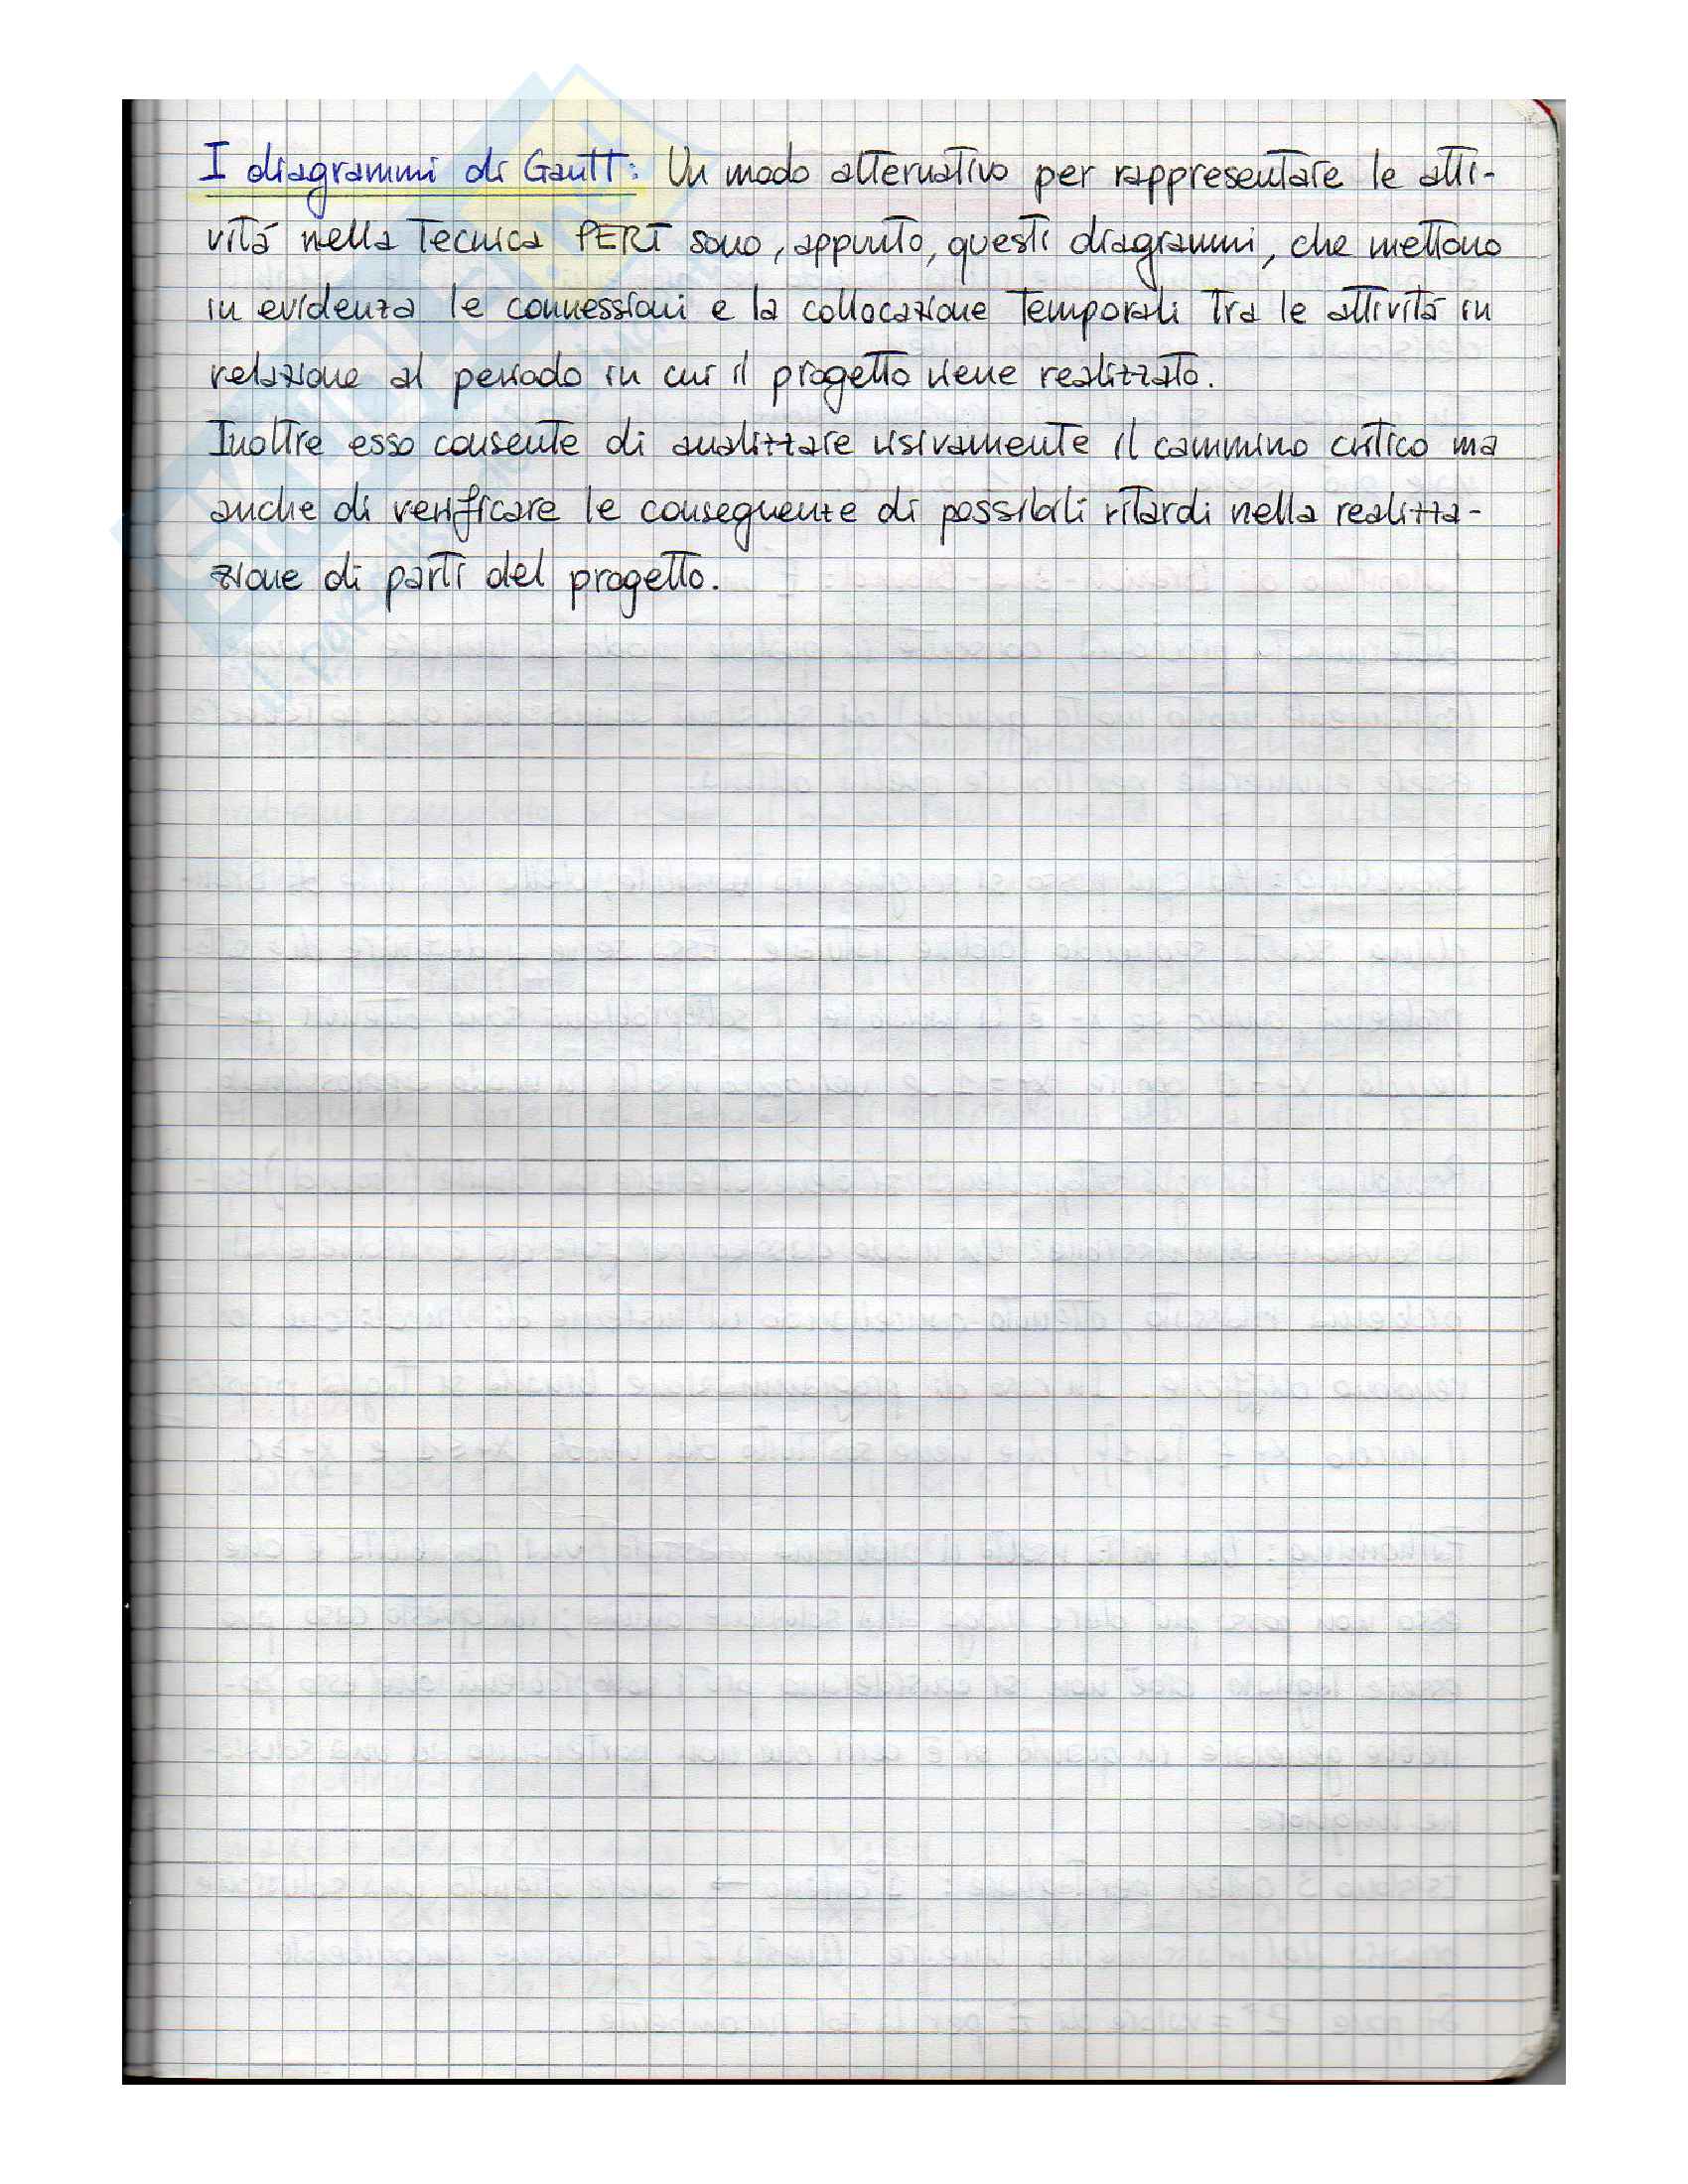 I diagrammi di Gantt: Un modo alternativo per rappresentare le atti-
vità nella tecnica PERT sono, appunto, questi diagrammi, che mettono
in evidenza le connessioni e la collocazione temporali tra le attività in
relazione al periodo in cui il progetto viene realizzato.
Inoltre esso consente di analizzare visivamente il cammino critico ma
anche di verificare le conseguenze di possibili ritardi nella realizza-
zione di parti del progetto.